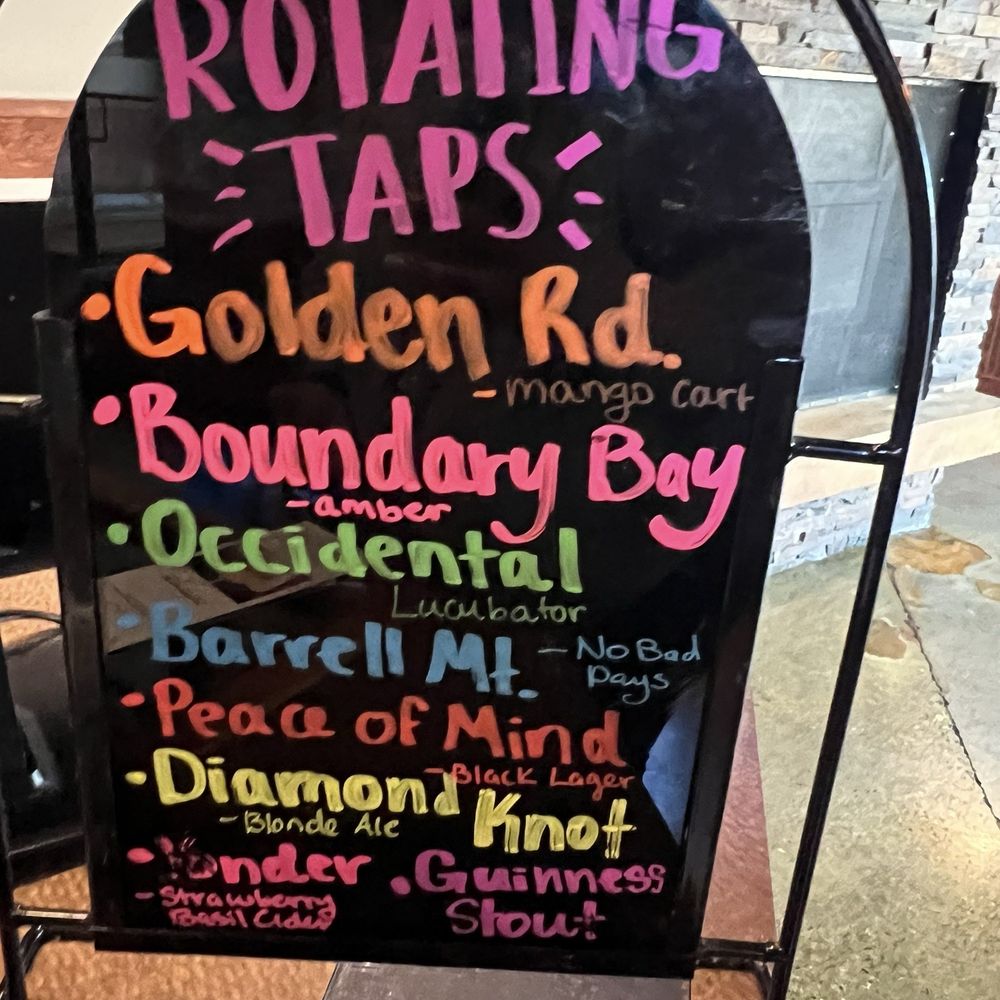 ROTATING
TAPS
• Golden Rd.
- mango cart
• Boundary Bay
- amber
• Occidental
Lucubator
• Barrell Mt. - No Bad
Days
• Peace of Mind
- Black Lager
• Diamond Knot
- Blonde Ale
• Yonder
- Strawberry
Basil Cider
• Guinness
Stout